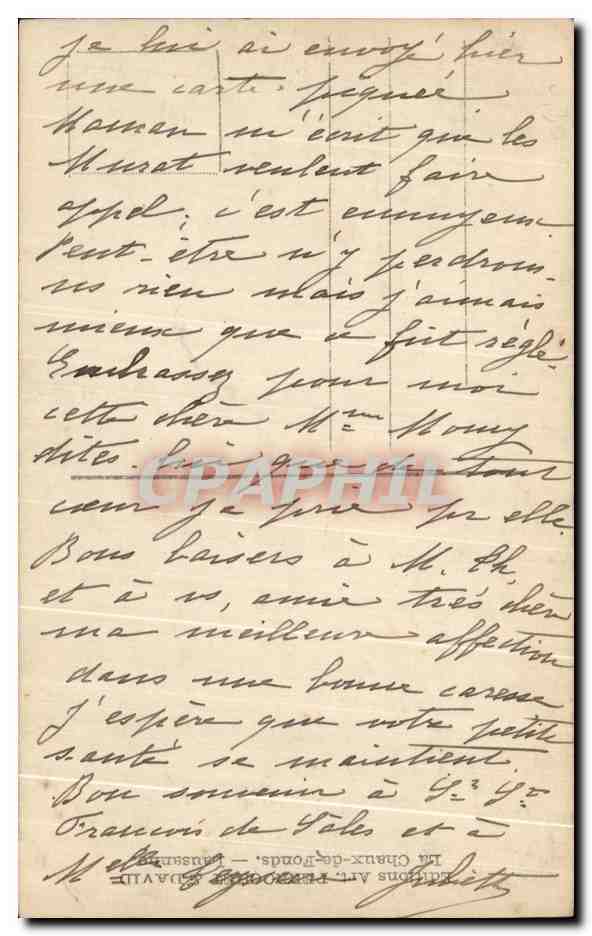 je lui ai envoyé hier
une carte. piquée
Maman m'écrit que les
Murat veulent faire
appel, c'est ennuyeux
Peut-être n'y perdrons
ns rien mais j'aimais
mieux que ce fût réglé.
Embrassez pour moi
cette chère Mme Momy
dites-lui que de tout
cœur je prie pr elle.
Bons baisers à M. Th.
et à vs, amie très chère
ma meilleure affection
dans une bonne caresse
J'espère que votre petite
santé se maintient
Bon souvenir à Sr St
François de Sales et à
Melle Juliette
CPAPHIL
Editions Art. PERROCHET & DAVID
La Chaux-de-Fonds. — Lausanne